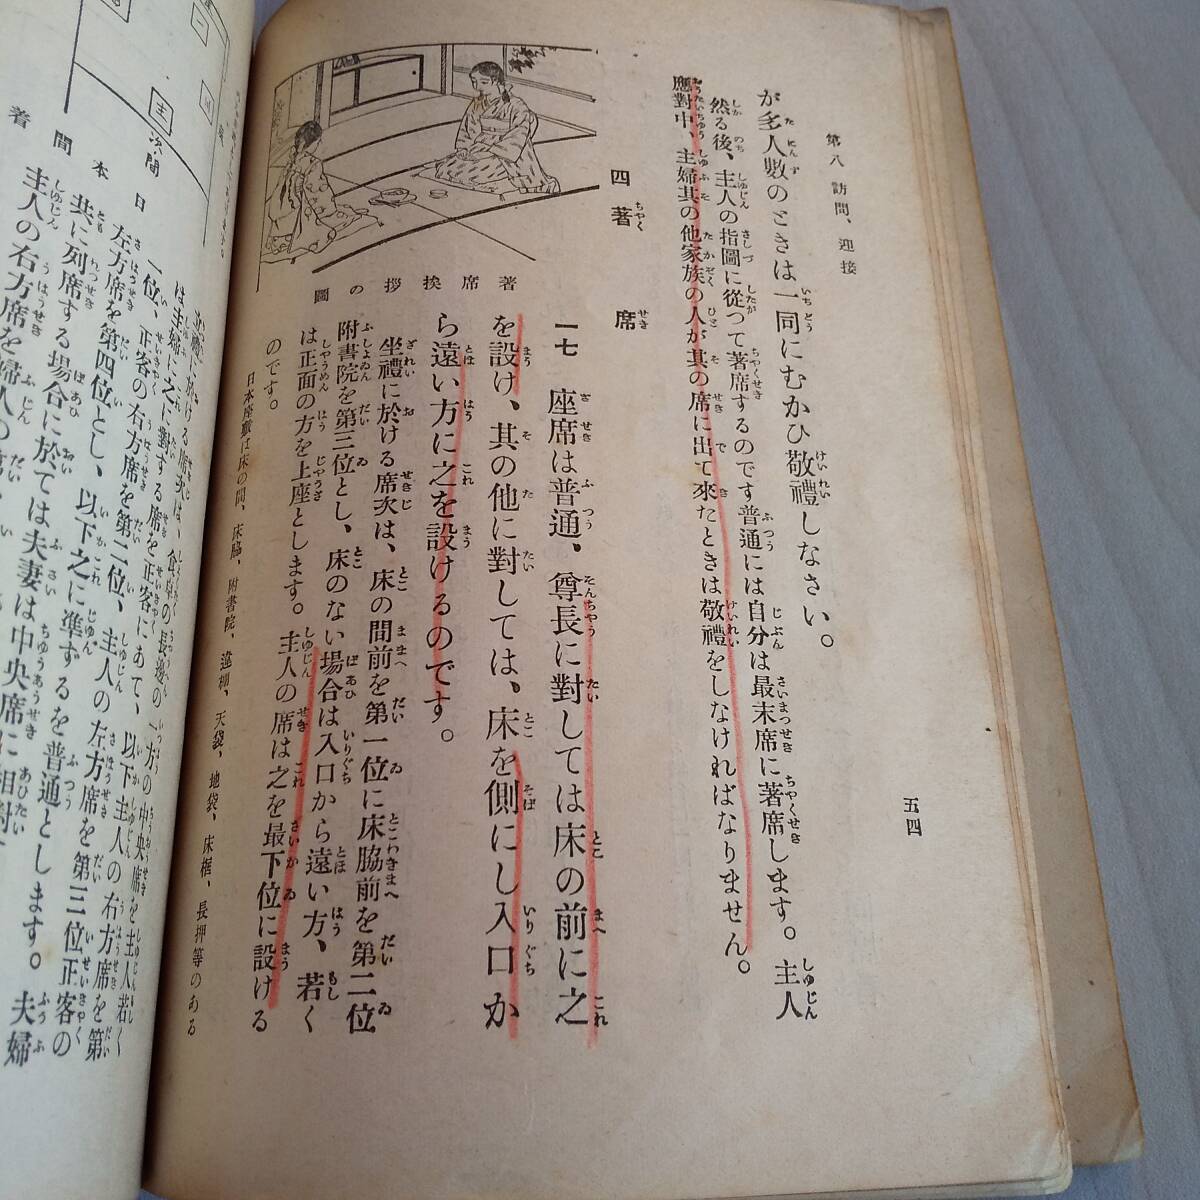 第八 訪問、迎接
五四
が多人數のときは一同にむかひ敬禮しなさい。
然る後、主人の指圖に從つて著席するのです 普通には自分は最末席に著席します。主人
應對中、主婦其の他家族の人が其の席に出て來たときは敬禮をしなければなりません。
四 著席
一七 座席は普通、尊長に對しては床の前に之
を設け、其の他に對しては、床を側にし入口か
ら遠い方に之を設けるのです。
著席挨拶の圖
坐禮に於ける席次は、床の間前を第一位に床脇前を第二位
附書院を第三位とし、床のない場合は入口から遠い方、若く
は正面の方を上座とします。主人の席は之を最下位に設ける
のです。
日本座敷は床の間、床脇、附書院、違棚、天袋、地袋、床框、長押等のある
一
主
次ノ間
日本間着
は主婦に之に對する席を正客にあて、以下主人の右方席を第
一位、正客の右方席を第二位、主人の左方席を第三位正客の
左方席を第四位とし、以下之に準ずるを普通とします。夫婦
共に列席する場合に於ては夫妻は中央席に相對
主人の右方席を婦人の